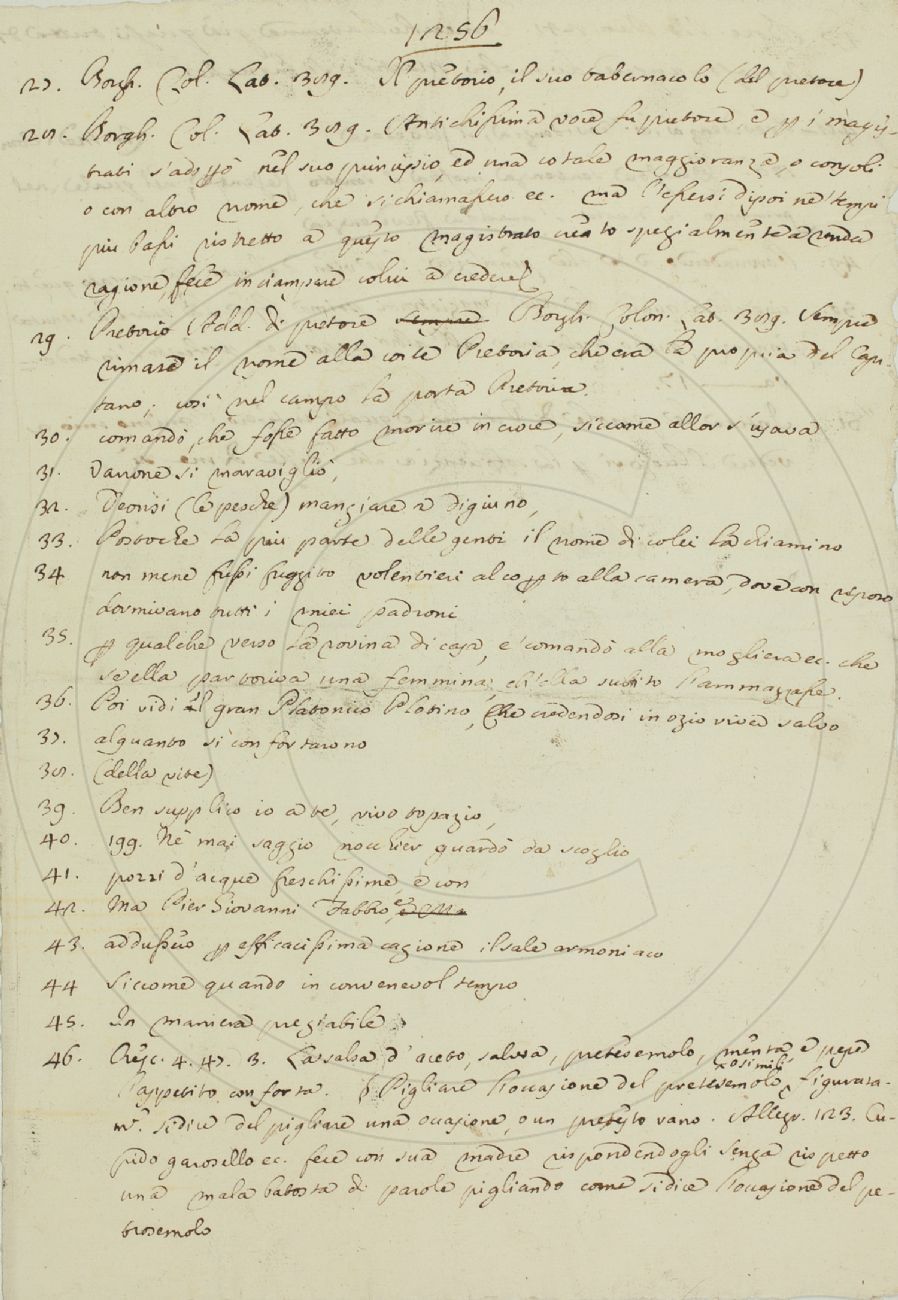 1256
27. Borgh. Col. Lat. 389. Il pretorio, il suo tabernacolo (del pretore)
28. Borgh. Col. Lat. 389. Antichissima voce fu pretore, e p i magis-
trati s'adoprò nel suo principio, ed una cotale maggioranza, o consoli
o con altro nome, che si chiamassero ec. ma l'essersi dipoi ne' tempi
più bassi ristretto a questo magistrato creato spezialmente a render
ragione, fece inciampare colui a credere
29. Pretorio Add. di pretore sempre Borgh. Colon. Lat. 389. Sempre
rimase il nome alla corte Pretoria, che era la propria del Capi-
tano; così nel campo la porta Pretoria.
30. comandò, che fosse fatto morire in croce, siccome allor s'usava
31. Varrone si maravigliò,
32. Deonsi (le pesche) mangiare a digiuno,
33. Postoche la più parte delle genti il nome di colei la chiamino
34 non mene fussi fuggito volentieri al coperto alla camera, dove con riposo
dormivano tutti i miei padroni
35. p qualche verso la rovina di casa, e comandò alla mogliera ec. che
se ella partoriva una femmina, ch'ella subito l'ammazzasse.
36. Poi vidi il gran Platonico Plotino, Che credendosi in ozio viver salvo
37. alquanto si confortarono
38. (della vite)
39. Ben supplico io a te, vivo topazio,
40. 199. Nè mai saggio nocchier guardò da scoglio
41. pozzi d'acque freschissime, e con
42. Ma Pier Giovanni Fabbro, e
43. addussero p efficacissima cagione il sale armoniaco
44 Siccome quando in convenevol tempo
45. In maniera pregiabile
46. Cresc. 4. 47. 3. La salsa d'aceto, salvia, pretesemolo, menta e pepe
o simili
l'appetito conforta. § Pigliare l'occasione del pretesemolo, figurata-
m. si dice del pigliare una occasione, o un pretesto vano. Allegr. 123. Cu-
pido garosello ec. fece con sua madre rispondendogli senza rispetto
una mala batosta di parole pigliando come si dice l'occasione del pe-
trosemolo